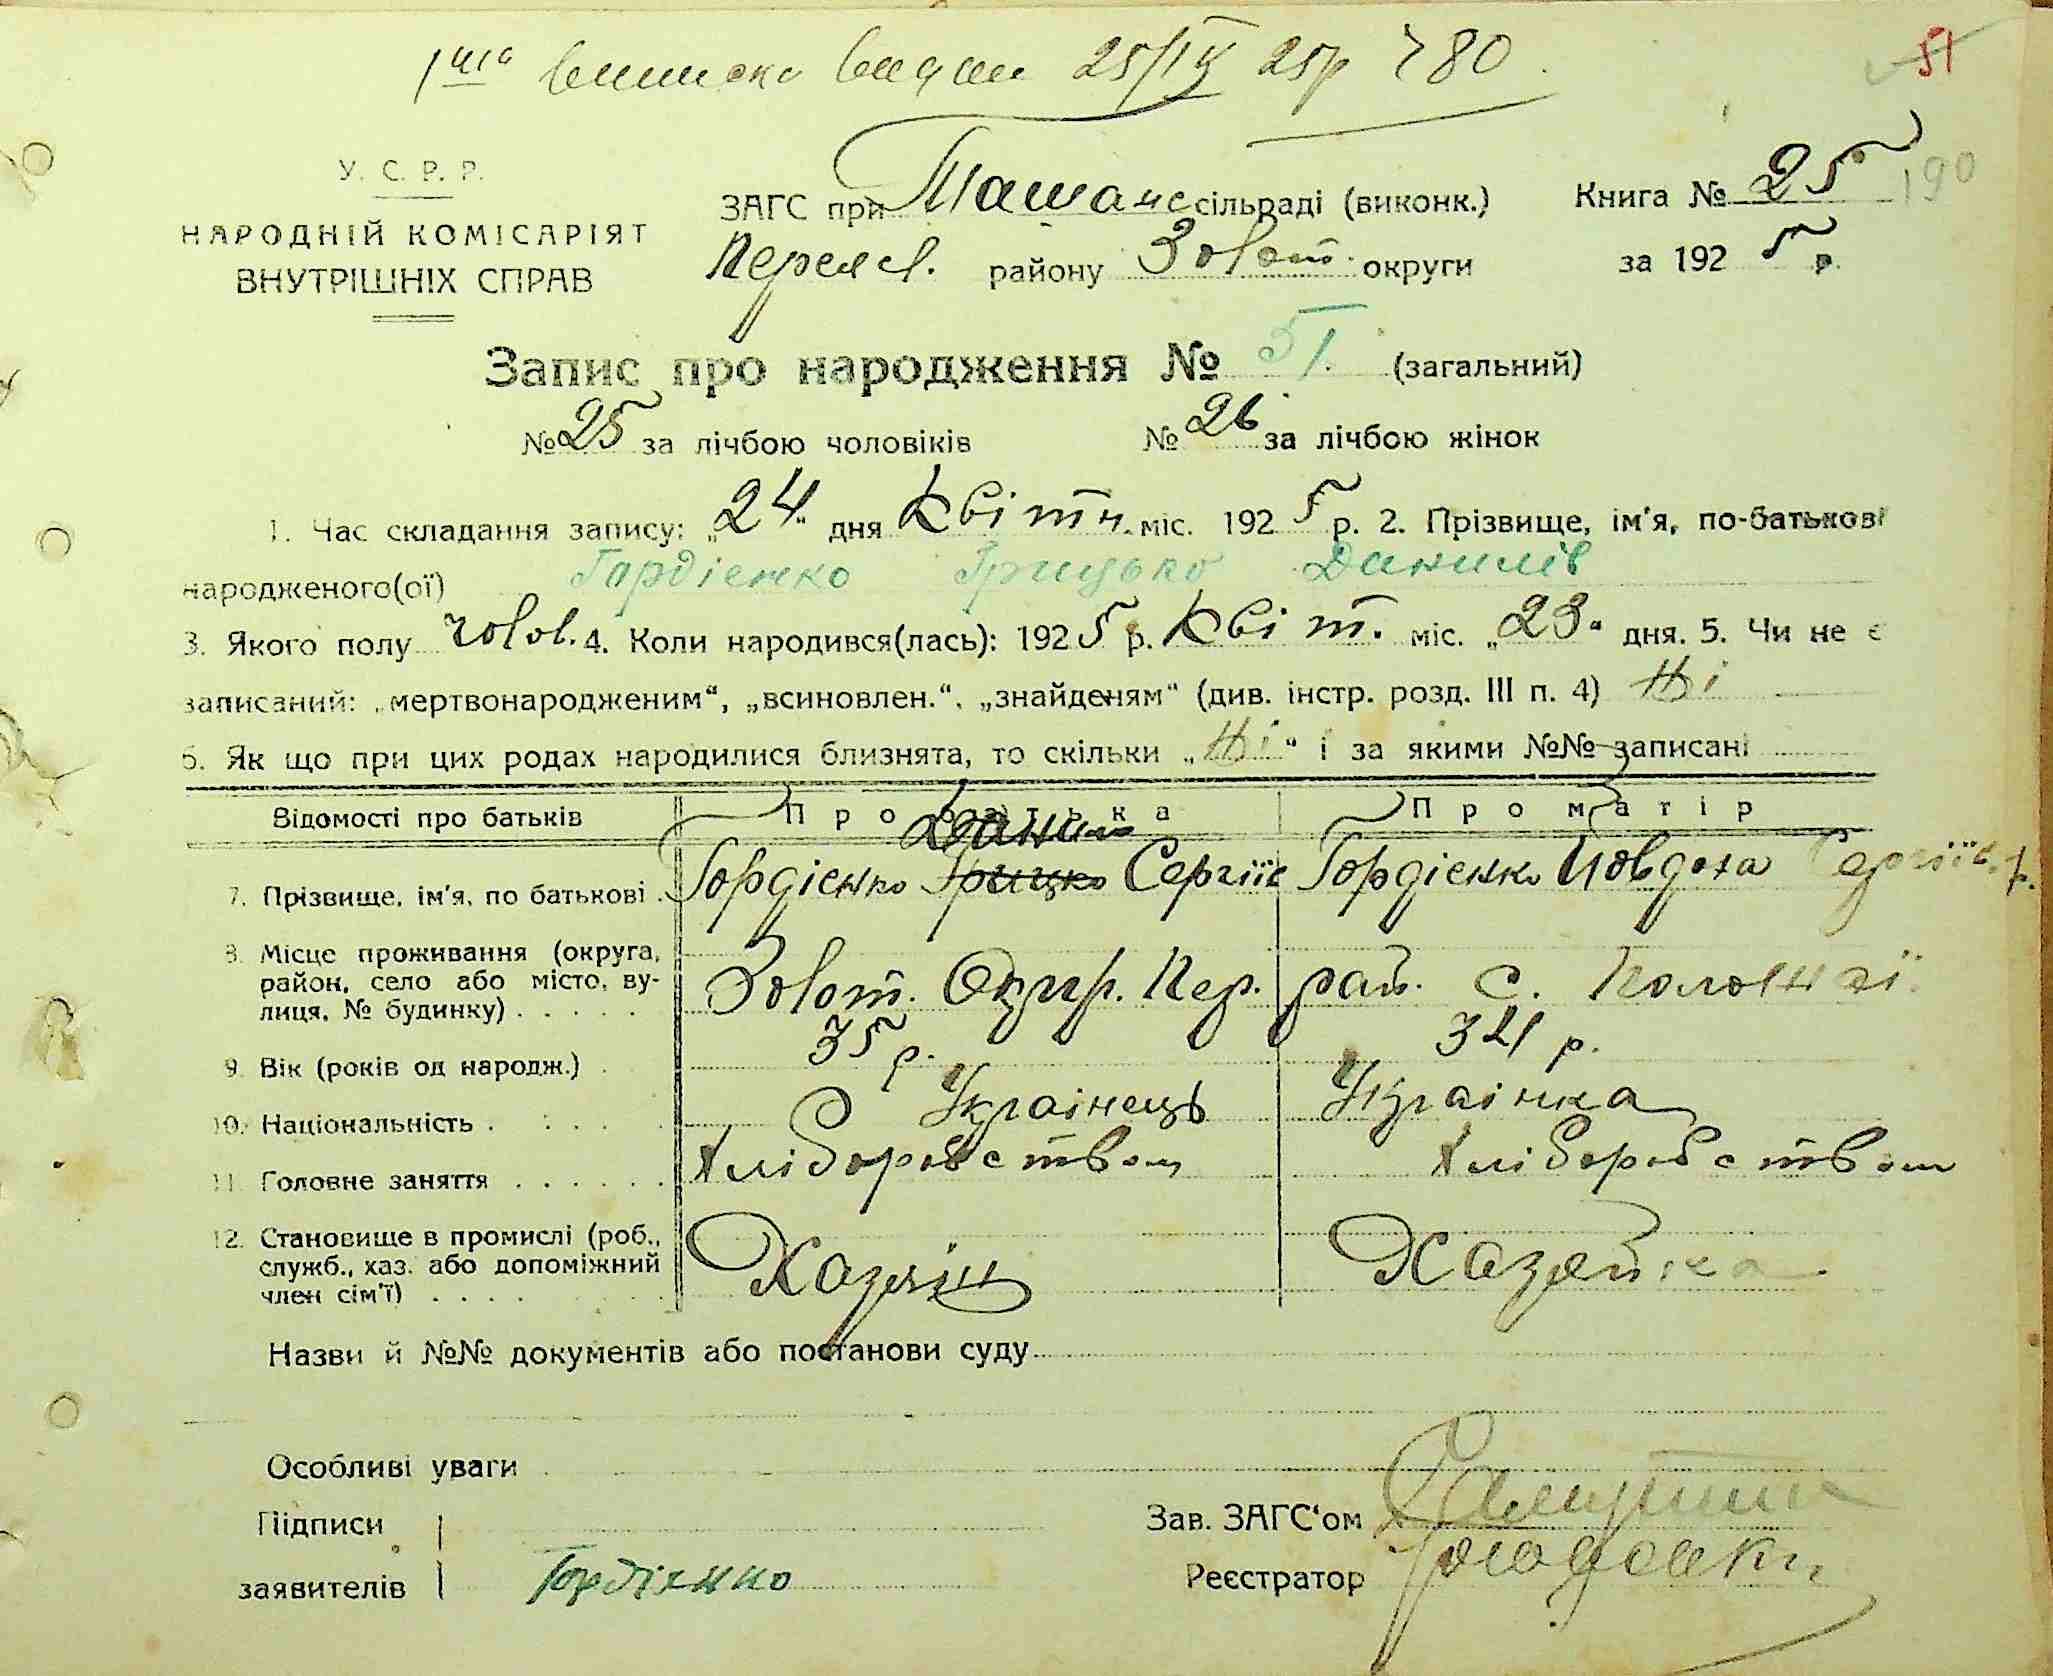 1ша виписка видан 25/IV 25р 780
51
У. С. Р. Р.
НАРОДНІЙ КОМІСАРІЯТ
ВНУТРІШНІХ СПРАВ
ЗАГС при Ташанс сільраді (виконк.)
Книга № 25 190
Переясл. району Золот. округи
за 1925 р.
Запис про народження № 51. (загальний)
№ 25 за лічбою чоловіків № 26 за лічбою жінок
1. Час складання запису: „24" дня Квітн. міс. 1925 р. 2. Прізвище, ім'я, по-батькові
народженого(ої) Гордієнко Грицько Данилів
3. Якого полу чолов. 4. Коли народився(лась): 1925 р. Квіт. міс. „23" дня. 5. Чи не є
записаний: „мертвонародженим", „всиновлен.", „знайденям" (див. інстр. розд. III п. 4) Ні
6. Як що при цих родах народилися близнята, то скільки „Ні" і за якими №№ записані
Відомості про батьків Про батька Про матір
Данило
7. Прізвище, ім'я, по батькові . Гордієнко Грицко Сергіїв Гордієнко Йовдоха Сергіїв.
8. Місце проживання (округа,
район, село або місто, ву-
лиця, № будинку) . . . . . Золот. Округ. Пер. рай. с.
9. Вік (років од народж.) . 35 р. 34 р.
10. Національність . . . . . Українець Українка
11. Головне заняття . . . . . . Хліборобством Хліборобством
12. Становище в промислі (роб.,
служб., хаз. або допоміжний
член сім'ї) . . . . Хазяїн Хазяйка
Назви й №№ документів або постанови суду
Особливі уваги
Підписи
заявителів Гордієнко
Зав. ЗАГС'ом
Реєстратор